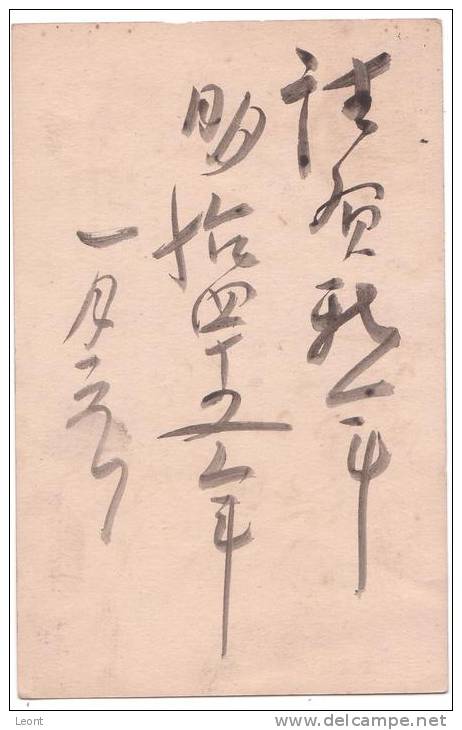 謹賀新年
明治四十五年
一月元
Leont
www.delcampe.net